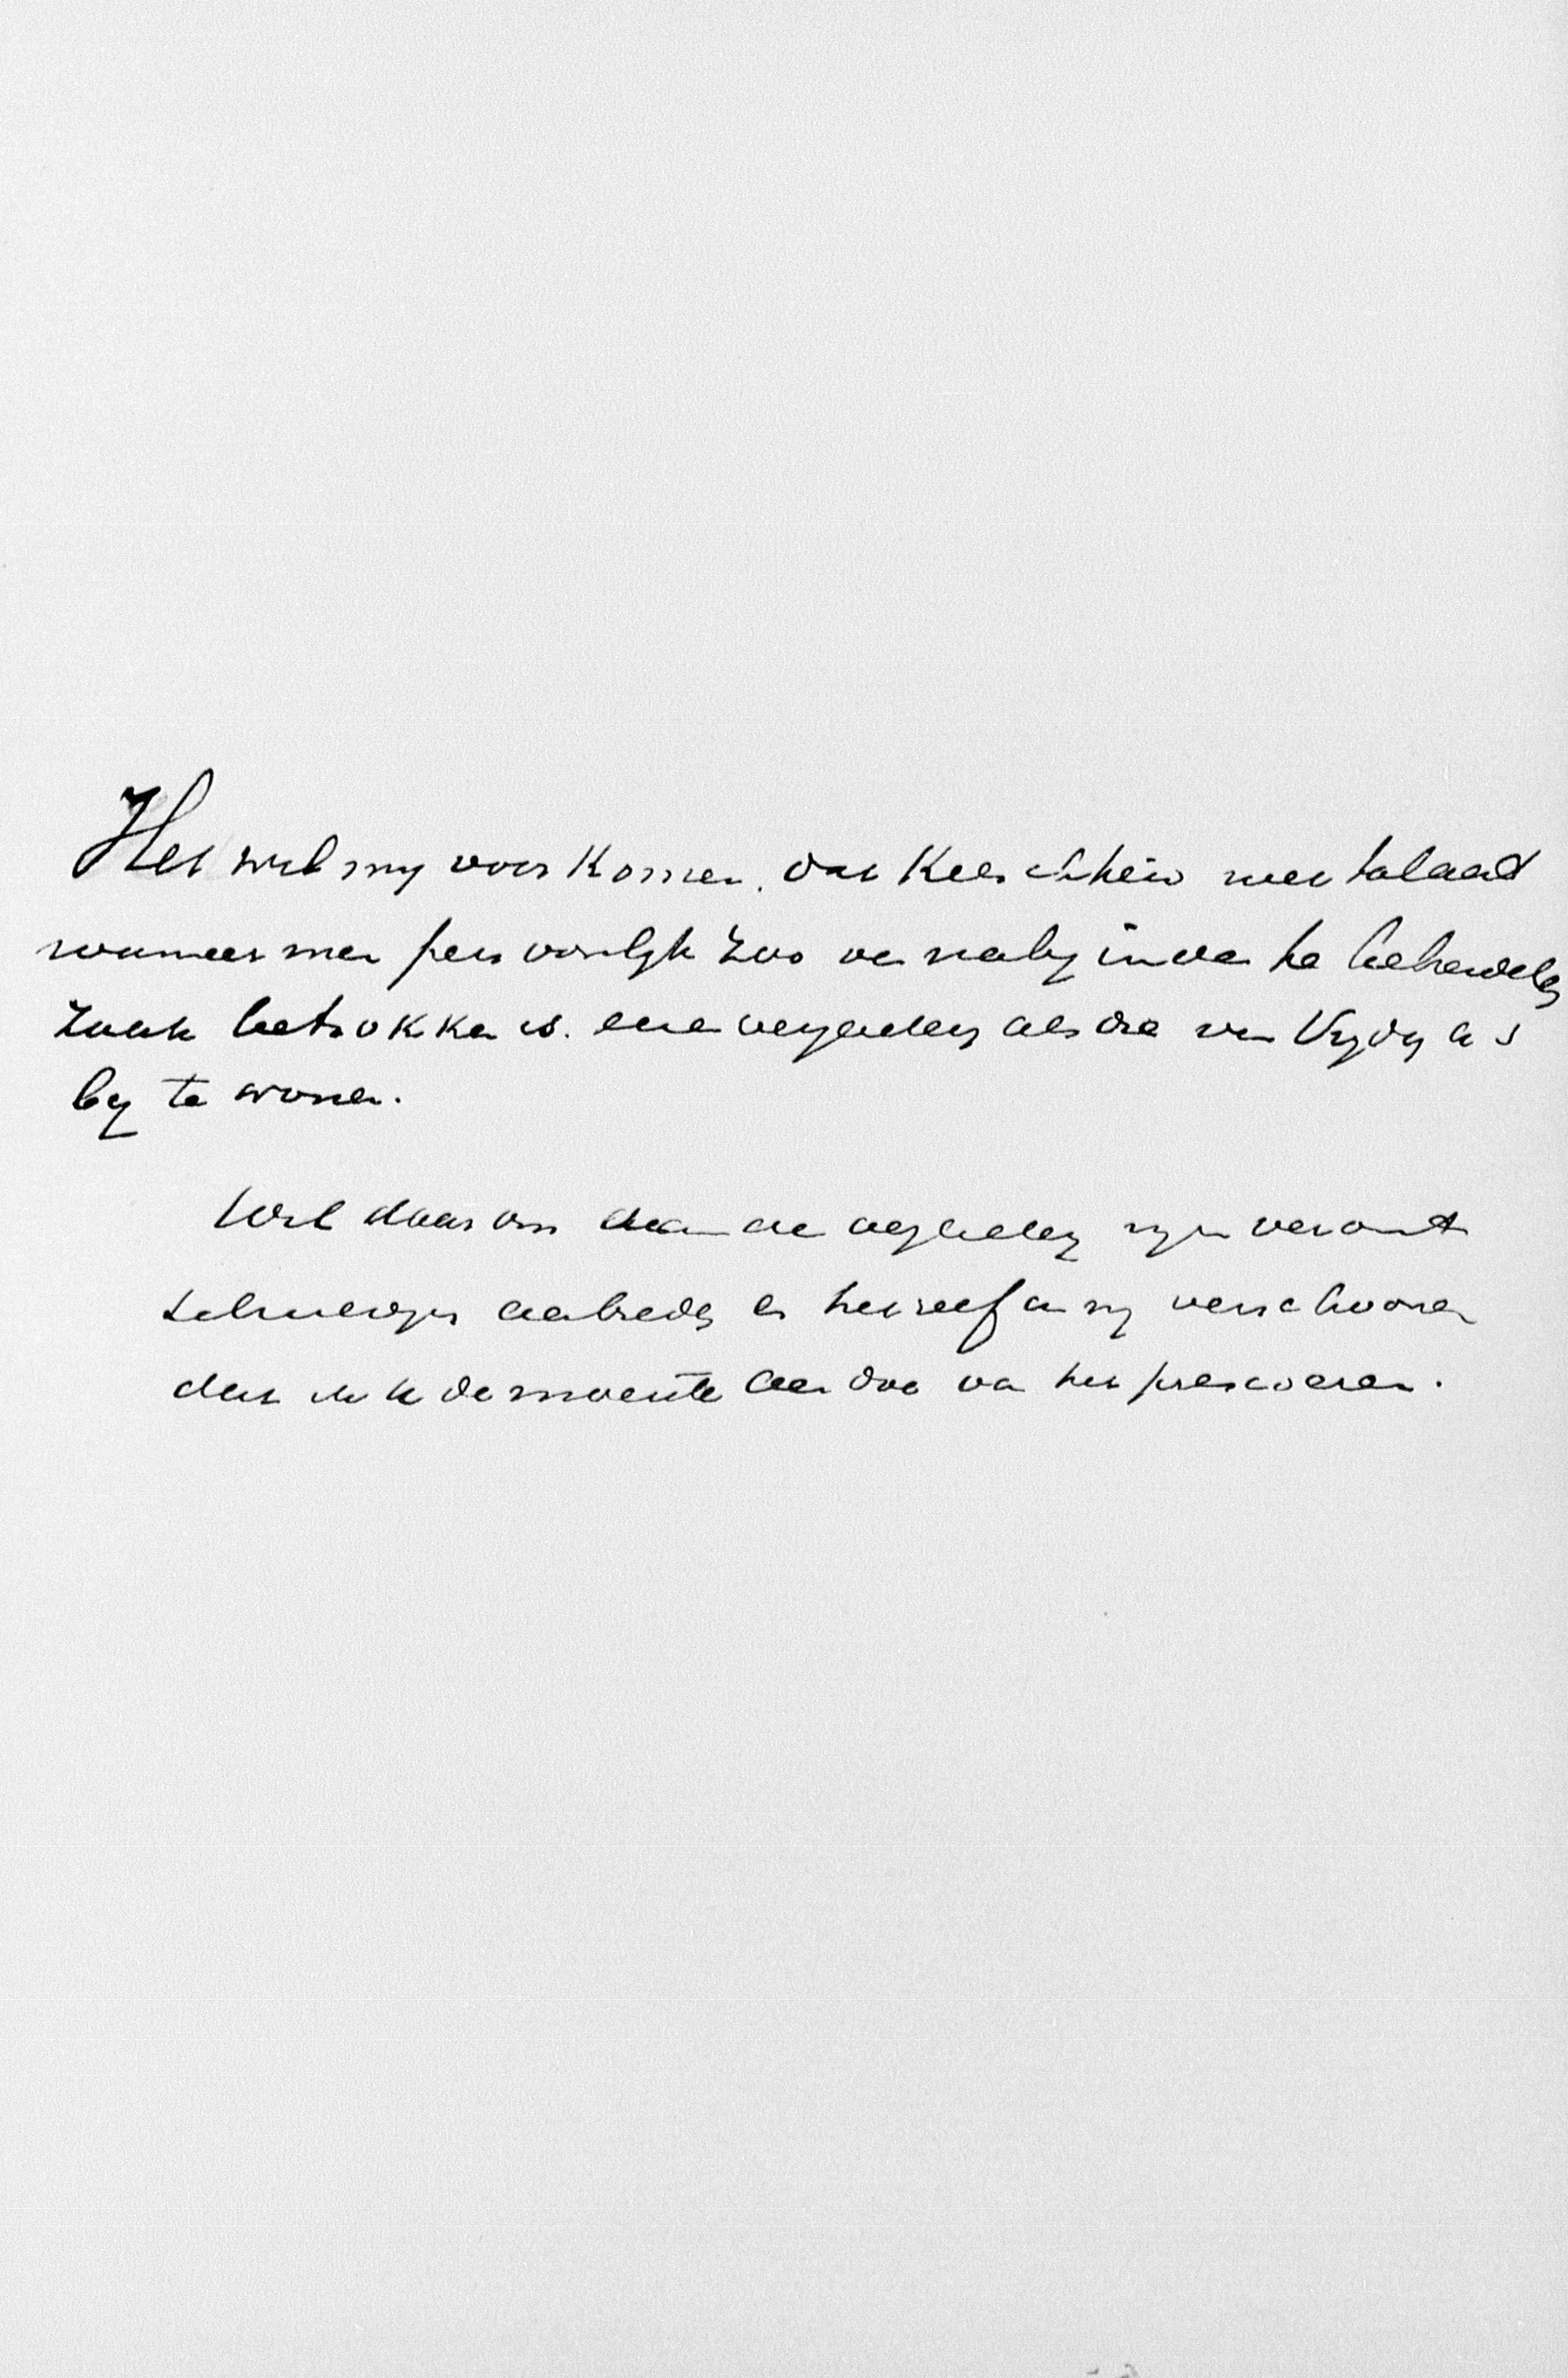 Het wil my voorkomen. dat Kieschheid niet toelaat
wanneer men persoonlijk zoo van naby in de te behandelen
zaak betrokken is. eene vergadering als die van Vrydag a s
by te wonen.
Wil daarom aan de vergadering myn veront
schuldiging aanbieden en
dat ik de moeite aan doe van het presideeren.